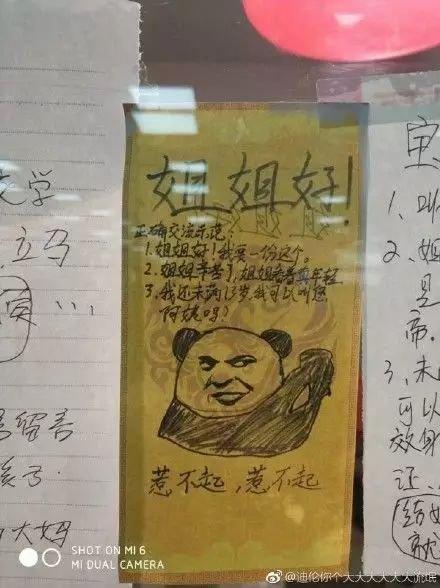 文学
立马
留言
大妈
姐姐好!
正确交流示范:
1.姐姐好!我要一份这个。
2.姐姐辛苦了,姐姐看着真年轻
3.我还未满13岁,我可以叫您
阿姨吗?
惹不起,惹不起
1、叫
2、姐
是
帝.
3、未
可以
效身
证、
SHOT ON MI 6
MI DUAL CAMERA
@迪伦你个大大大大大大流氓